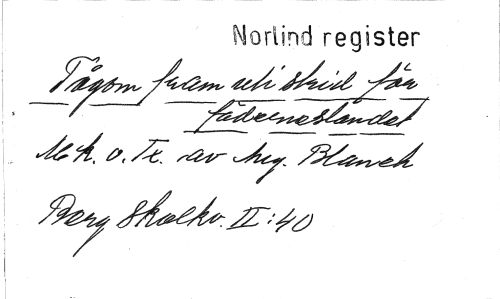 Norlind register
Tågom fram uti strid för
fäderneslandet
Mk. o. Te. av Aug. Blanch
Berg Skolkv. II:40